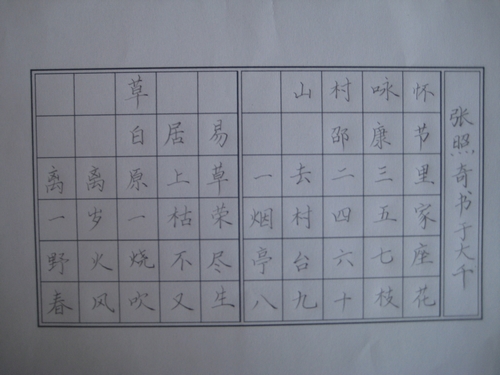 草
白居易
离离原上草
一岁一枯荣
野火烧不尽
春风吹又生
山村咏怀
邵康节
一去二三里
烟村四五家
亭台六七座
八九十枝花
张照奇书于大千